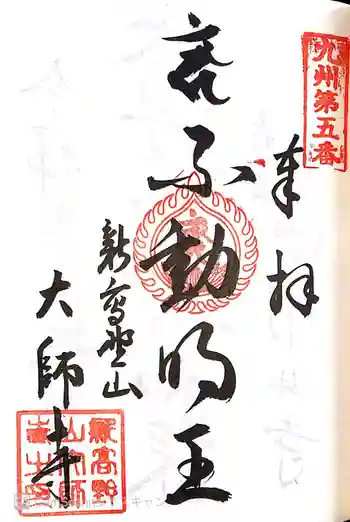 九州第五番
奉拝
不動明王
新高野山
大師寺
新高野
山大師
寺之印